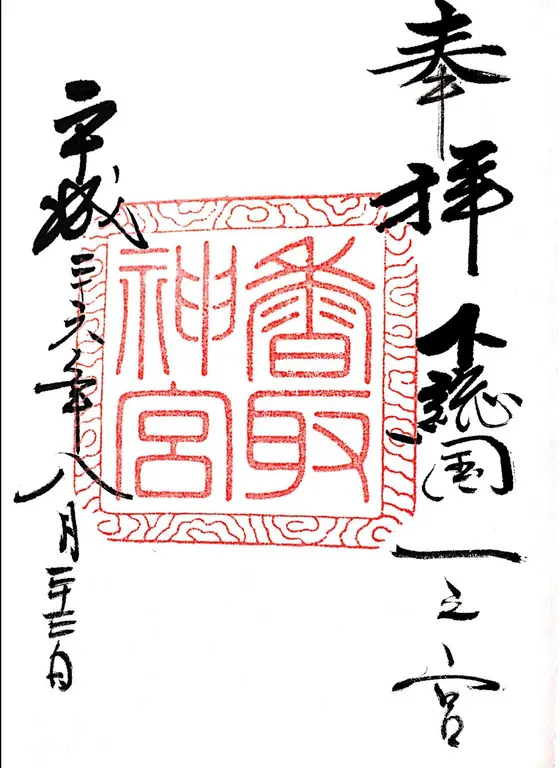 奉拝 下総国一之宮
香取
神宮
平成二十六年八月二十三日